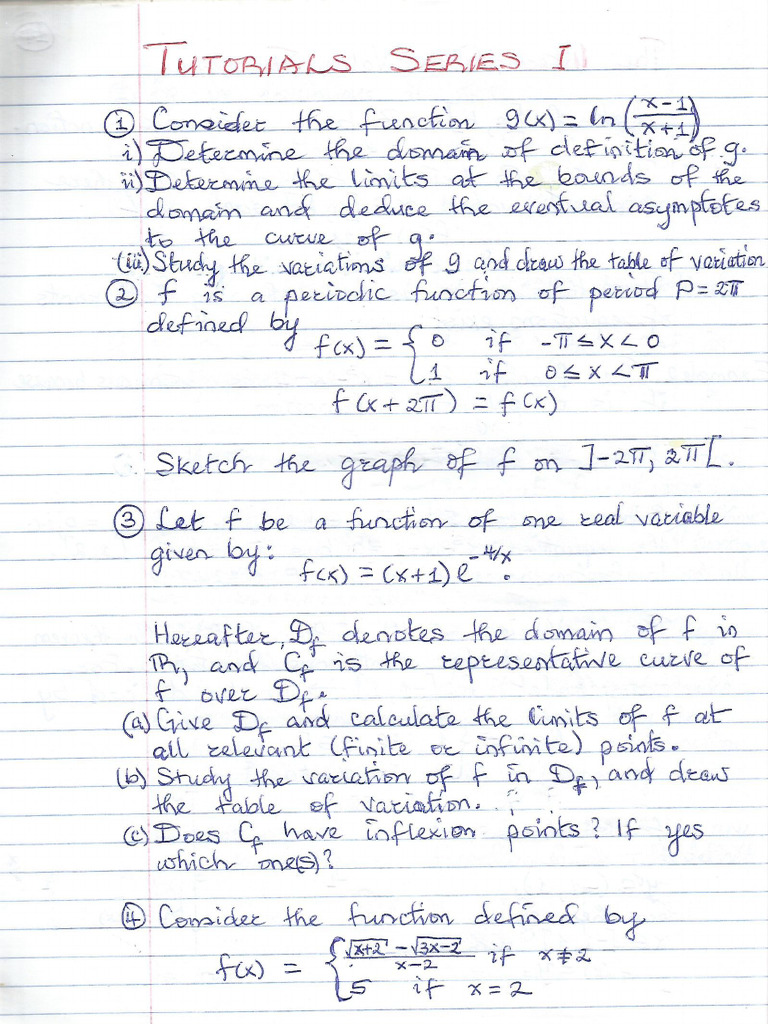 TUTORIALS SERIES I
① Consider the function g(x) = ln(x-1/x+1)
i) Determine the domain of definition of g.
ii) Determine the limits at the bounds of the
domain and deduce the eventual asymptotes
to the curve of g.
(iii) Study the variations of g and draw the table of variation
② f is a periodic function of period P = 2π
defined by
f(x) = { 0 if -π ≤ x < 0
1 if 0 ≤ x < π
f(x + 2π) = f(x)
Sketch the graph of f on ]-2π, 2π[.
③ Let f be a function of one real variable
given by:
f(x) = (x+1) e^-4/x.
Hereafter, Df denotes the domain of f in
ℝ, and Cf is the representative curve of
f over Df.
(a) Give Df and calculate the limits of f at
all relevant (finite or infinite) points.
(b) Study the variation of f in Df, and draw
the table of variation.
(c) Does Cf have inflexion points? If yes
which one(s)?
④ Consider the function defined by
f(x) = { √x+2 - √3x-2 / x-2 if x ≠ 2
5 if x = 2